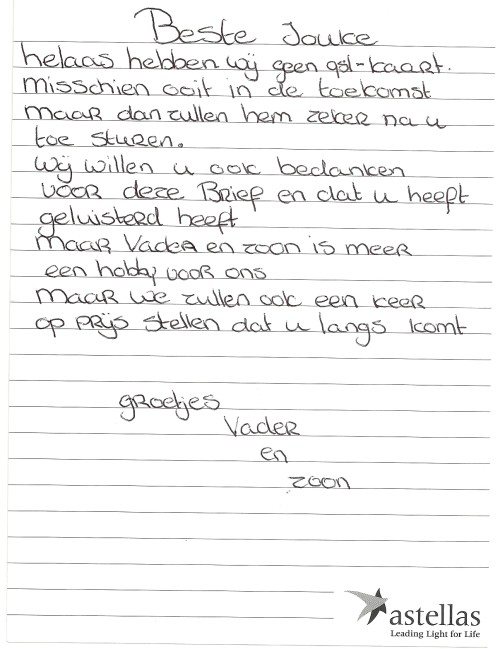 Beste Jouke
helaas hebben wij geen qsl-kaart.
misschien ooit in de toekomst
maar dan zullen hem zeker na u
toe sturen.
wij willen u ook bedanken
voor deze Brief en dat u heeft
geluisterd heeft
maar Vader en zoon is meer
een hobby voor ons
maar we zullen ook een keer
op prijs stellen dat u langs komt
groetjes
Vader
en
zoon
astellas
Leading Light for Life